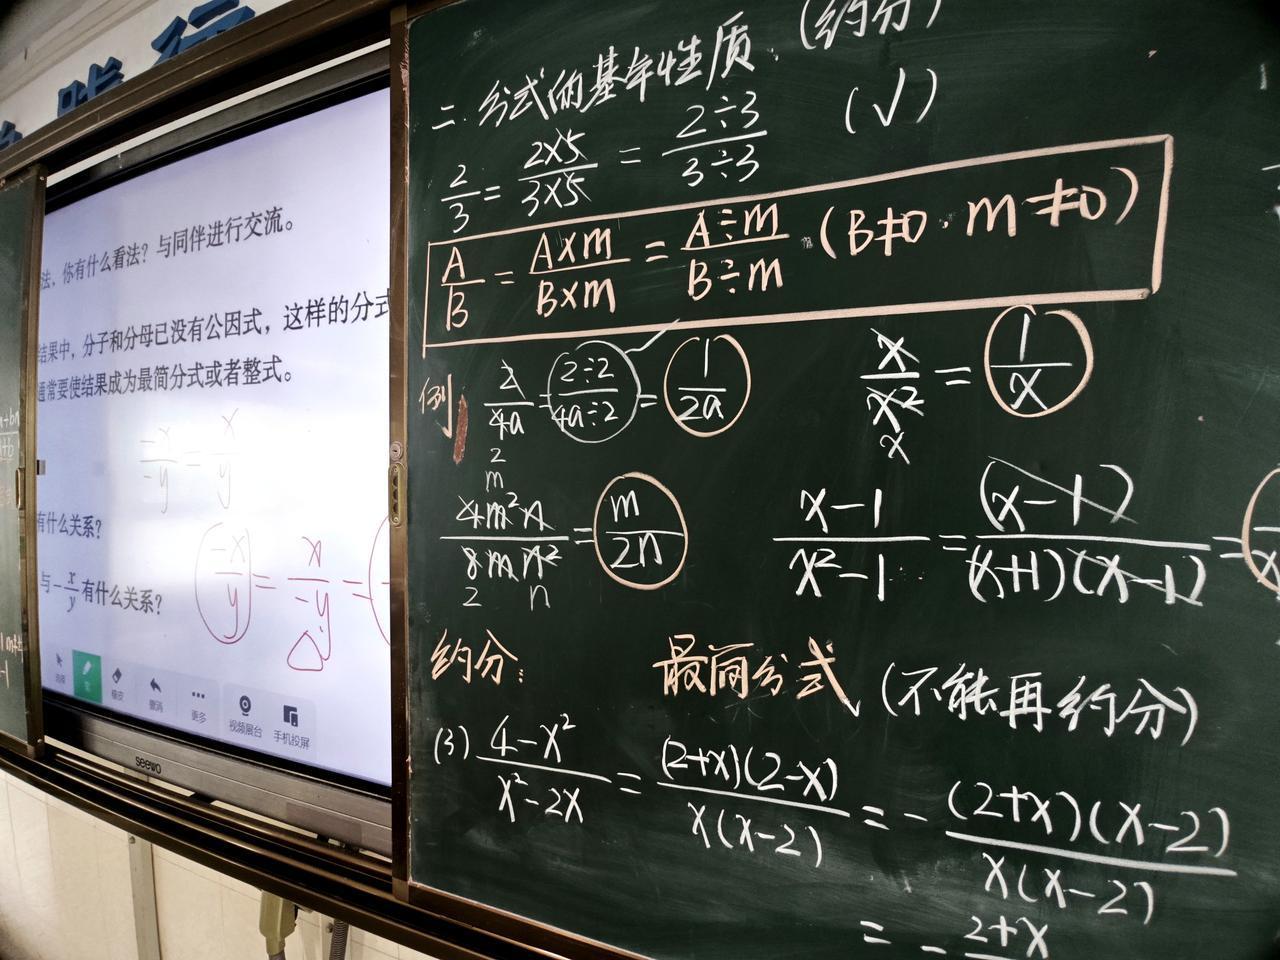 法，你有什么看法？与同伴进行交流。
结果中，分子和分母已没有公因式，这样的分式
通常要使结果成为最简分式或者整式。
-x/-y = x/y
有什么关系？
与 -x/y 有什么关系？
-x/y = x/-y =
选择 笔 橡皮 撤消 更多 视频展台 手机投屏
seewo
二. 分式的基本性质：(约分)
2/3 = 2×5/3×5 = 2÷3/3÷3 (√)
A/B = A×m/B×m = A÷m/B÷m (B≠0, m≠0)
例 2/4a = 2÷2/4a÷2 = 1/2a
2
x/x² = 1/x
x
m
4m²n/8mn² = m/2n
2 n
x-1/x²-1 = (x-1)/(x+1)(x-1) =
约分： 最简分式 (不能再约分)
(3) 4-x²/x²-2x = (2+x)(2-x)/x(x-2) = - (2+x)(x-2)/x(x-2)
= - 2+x